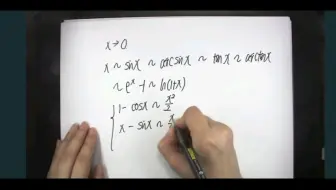 x→0
x ~ sinx ~ arcsinx ~ tanx ~ arctanx
~ eˣ-1 ~ ln(1+x)
1-cosx ~ x²/2
x-sinx ~ x